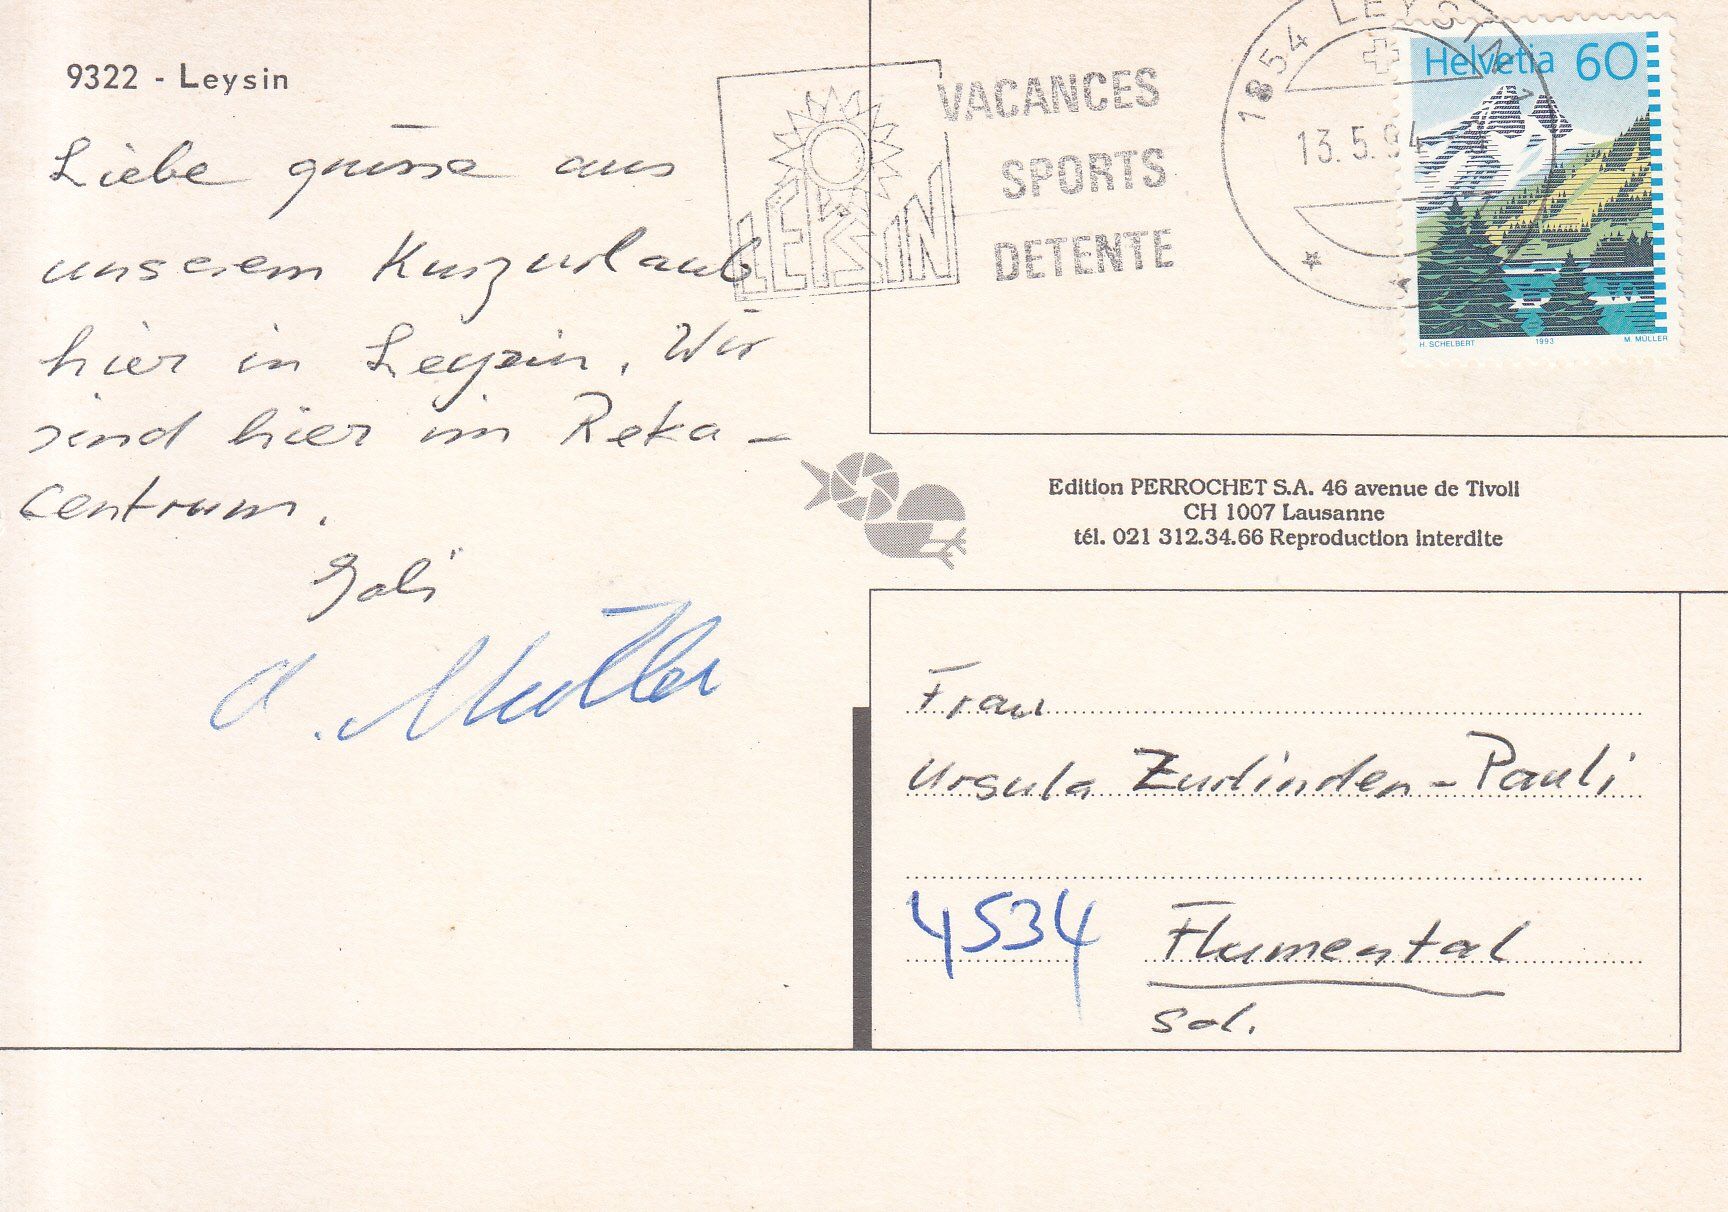 9322 - Leysin
Liebe grüsse aus
unserem Kurzurlaub
hier in Leysin. Wir
sind hier im Reka-
centrum.
A. Müller
LEYSIN
VACANCES
SPORTS
DETENTE
1854 LEYSIN
13.5.94
Helvetia 60
H. SCHELBERT 1993 M. MÜLLER
Edition PERROCHET S.A. 46 avenue de Tivoli
CH 1007 Lausanne
tél. 021 312.34.66 Reproduction interdite
Frau
Ursula Zurlinden-Pauli
4534 Flumental
Sol.